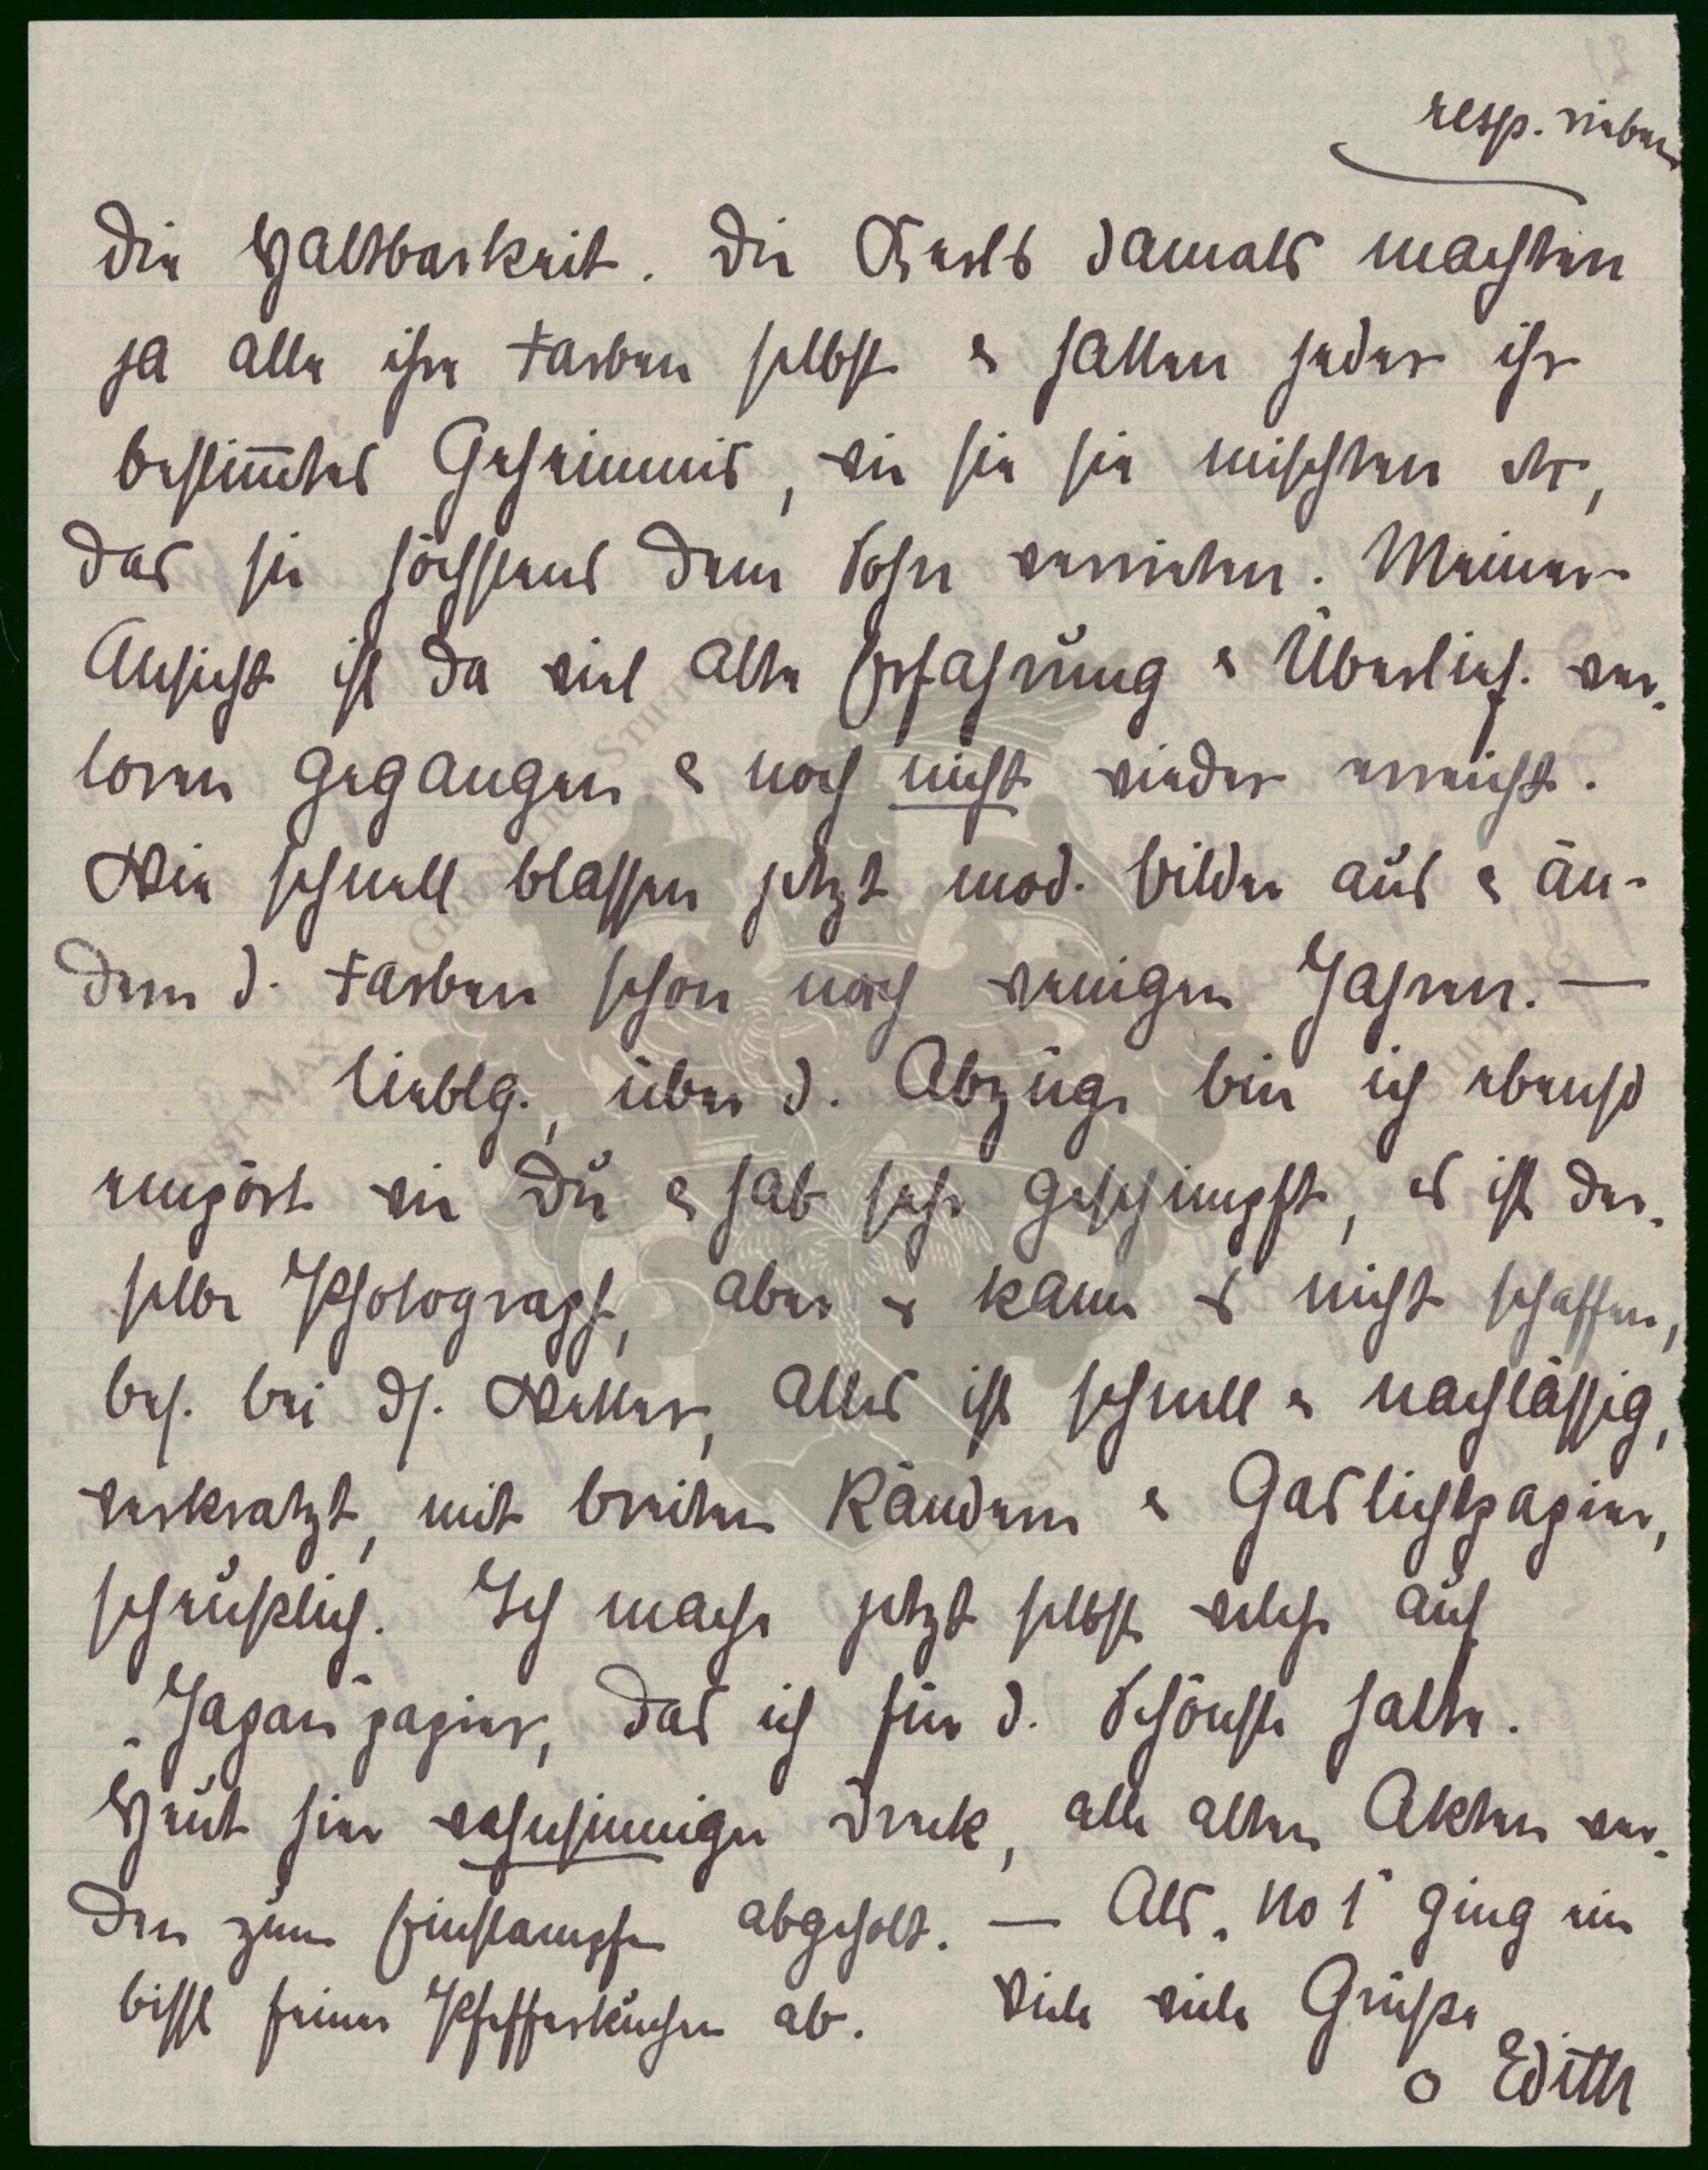 resp. rieben
die Haltbarkeit. Die Kerls damals machten
ja alle ihre Farben selbst & hatten jeder ihr
bestim̅tes Geheimnis, wie sie sie mischten etc,
das sie höchstens dem Sohn verrieten. Meiner
Ansicht ist da viel alte Erfahrung & Überlief. ver-
loren gegangen & noch nicht wieder erreicht.
Wie schnell blassen jetzt mod. Bilder aus & än-
dern d. Farben schon nach wenigen Jahren. —
Lieblg., über d. Abzüge bin ich ebenso
empört wie Du & hab sehr geschimpft, es ist der-
selbe Photograph, aber er kann es nicht schaffen,
bes. bei ds. Wetter, alles ist schnell & nachlässig,
verkratzt, mit breiten Rändern & Gaslichtpapier,
scheußlich. Ich mache jetzt selbst welche auf
„Japan"papier, das ich für d. Schönste halte.
Heut hier wahnsinniger Druck, alle alten Akten wer-
den zum Einstampfen abgeholt. — Als „No 1" ging ein
bissl feiner Pfefferkuchen ab. Viele viele Grüße
o Edith
ERNST MAX VON GRUNELIUS-STIFTUNG